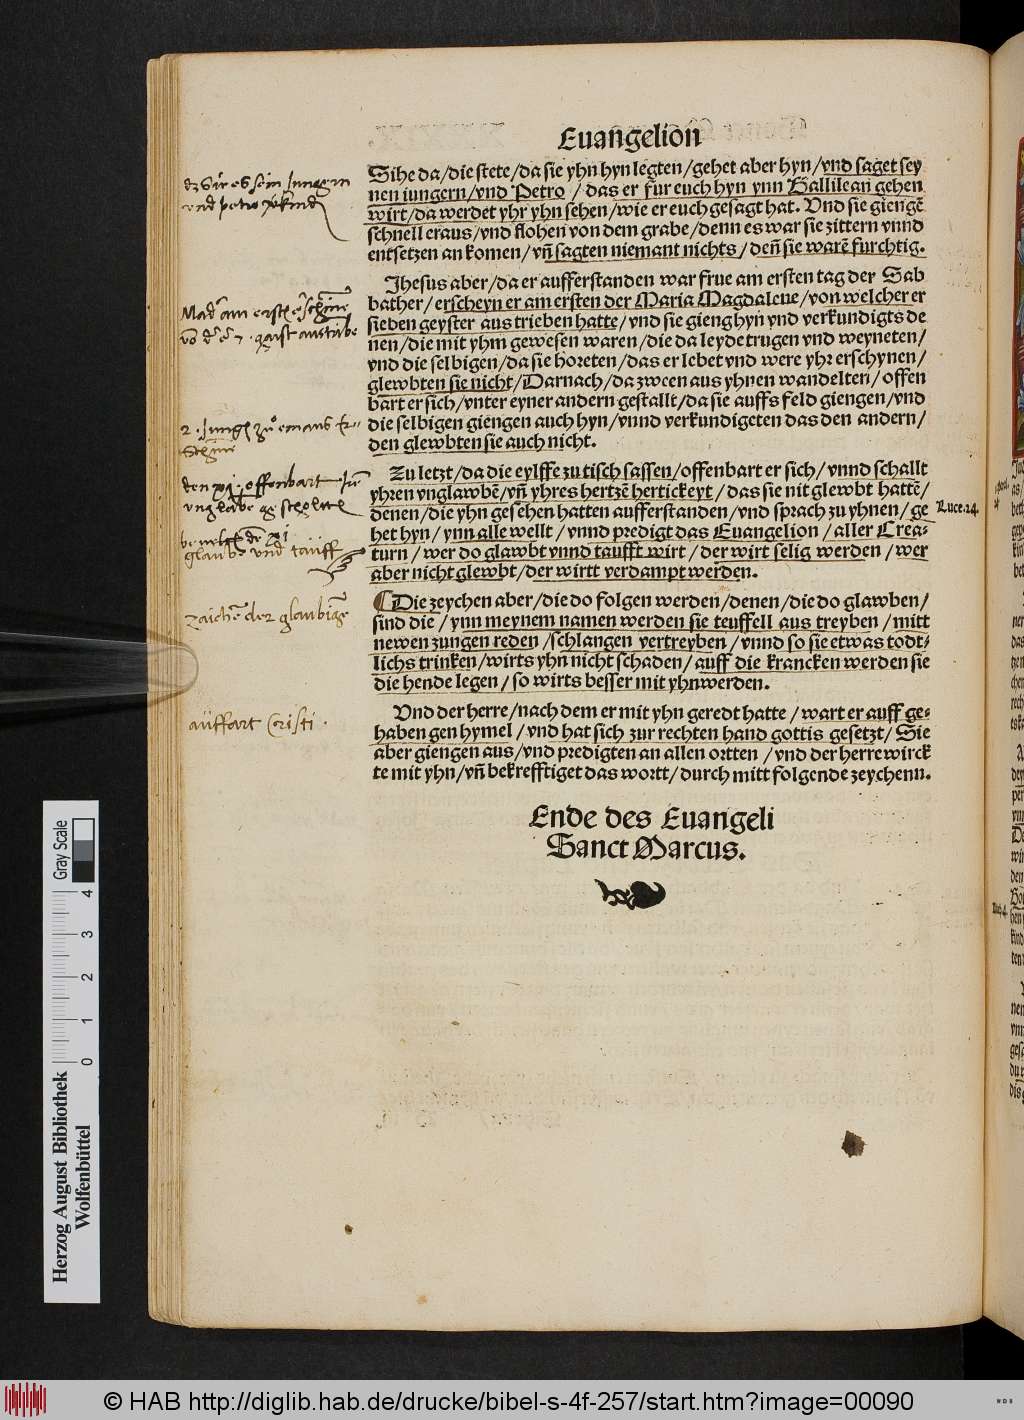 Euangelion
Sihe da/die stete/da sie yhn hyn legten/gehet aber hyn/vnd saget sey
nen iungern/vnd Petro/das er fur euch hyn ynn Gallilean gehen
wirt/da werdet yhr yhn sehen/wie er euch gesagt hat. Vnd sie giengē
schnell eraus/vnd flohen von dem grabe/denn es war sie zittern vnnd
entsetzen an komen/vñ sagten niemant nichts/deñ sie warē furchtig.
Jhesus aber/da er aufferstanden war frue am ersten tag der Sab
bather/erscheyn er am ersten der Maria Magdalene/von welcher er
sieben geyster aus trieben hatte/vnd sie gieng hyn vnd verkundigts de
nen/die mit yhm gewesen waren/die da leyde trugen vnd weyneten/
vnd die selbigen/da sie horeten/das er lebet vnd were yhr erschynen/
glewbten sie nicht/Darnach/da zween aus yhnen wandelten/offen
bart er sich/vnter eyner andern gestallt/da sie auffs feld giengen/vnd
die selbigen giengen auch hyn/vnnd verkundigeten das den andern/
den glewbten sie auch nicht.
Zu letzt/da die eylffe zu tisch sassen/offenbart er sich/vnnd schallt
yhren vnglawbē/vñ yhres hertzē hertickeyt/das sie nit glewbt hattē/
denen/die yhn gesehen hatten aufferstanden/vnd sprach zu yhnen/ge
het hyn/ynn alle wellt/vnnd predigt das Euangelion/aller Crea-
turn/wer do glawbt vnnd taufft wirt/der wirt selig werden/wer
aber nicht glewbt/der wirtt verdampt werden.
Die zeychen aber/die do folgen werden/denen/die do glawben/
sind die/ynn meynem namen werden sie teuffell aus treyben/mitt
newen zungen reden/schlangen vertreyben/vnnd so sie etwas todt-
lichs trinken/wirts yhn nicht schaden/auff die krancken werden sie
die hende legen/so wirts besser mit yhn werden.
Vnd der herre/nach dem er mit yhn geredt hatte/wart er auff ge-
haben gen hymel/vnd hat sich zur rechten hand gottis gesetzt/Sie
aber giengen aus/vnd predigten an allen ortten/vnd der herre wirck
te mit yhn/vñ bekrefftiget das wortt/durch mitt folgende zeychenn.
Ende des Euangeli
Sanct Marcus.
Luce.24.
den xj. offenbart
glaub vnd tauff
zaichē der glaubigē
auffart Cristi.
Gray Scale
0 1 2 3 4
Herzog August Bibliothek
Wolfenbüttel
© HAB http://diglib.hab.de/drucke/bibel-s-4f-257/start.htm?image=00090